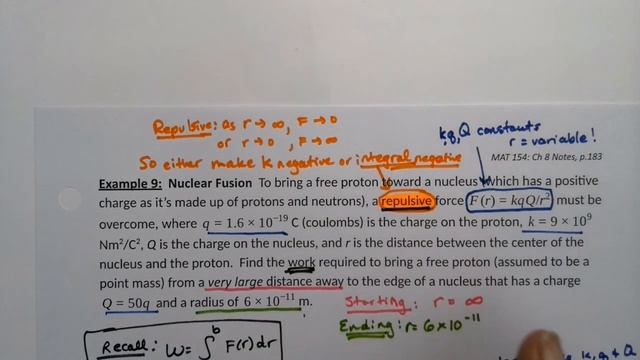 Repulsive: as r → ∞, F → 0
or r → 0, F → ∞
k, q, Q constants
r = variable!
So either make k negative or integral negative
MAT 154: Ch 8 Notes, p.183
Example 9: Nuclear Fusion To bring a free proton toward a nucleus (which has a positive
charge as it's made up of protons and neutrons), a repulsive force F(r) = kqQ/r² must be
overcome, where q = 1.6 × 10⁻¹⁹ C (coulombs) is the charge on the proton, k = 9 × 10⁹
Nm²/C², Q is the charge on the nucleus, and r is the distance between the center of the
nucleus and the proton. Find the work required to bring a free proton (assumed to be a
point mass) from a very large distance away to the edge of a nucleus that has a charge
Q = 50q and a radius of 6 × 10⁻¹¹ m.
Starting: r = ∞
Ending: r = 6×10⁻¹¹
Recall: W = ∫ₐᵇ F(r) dr